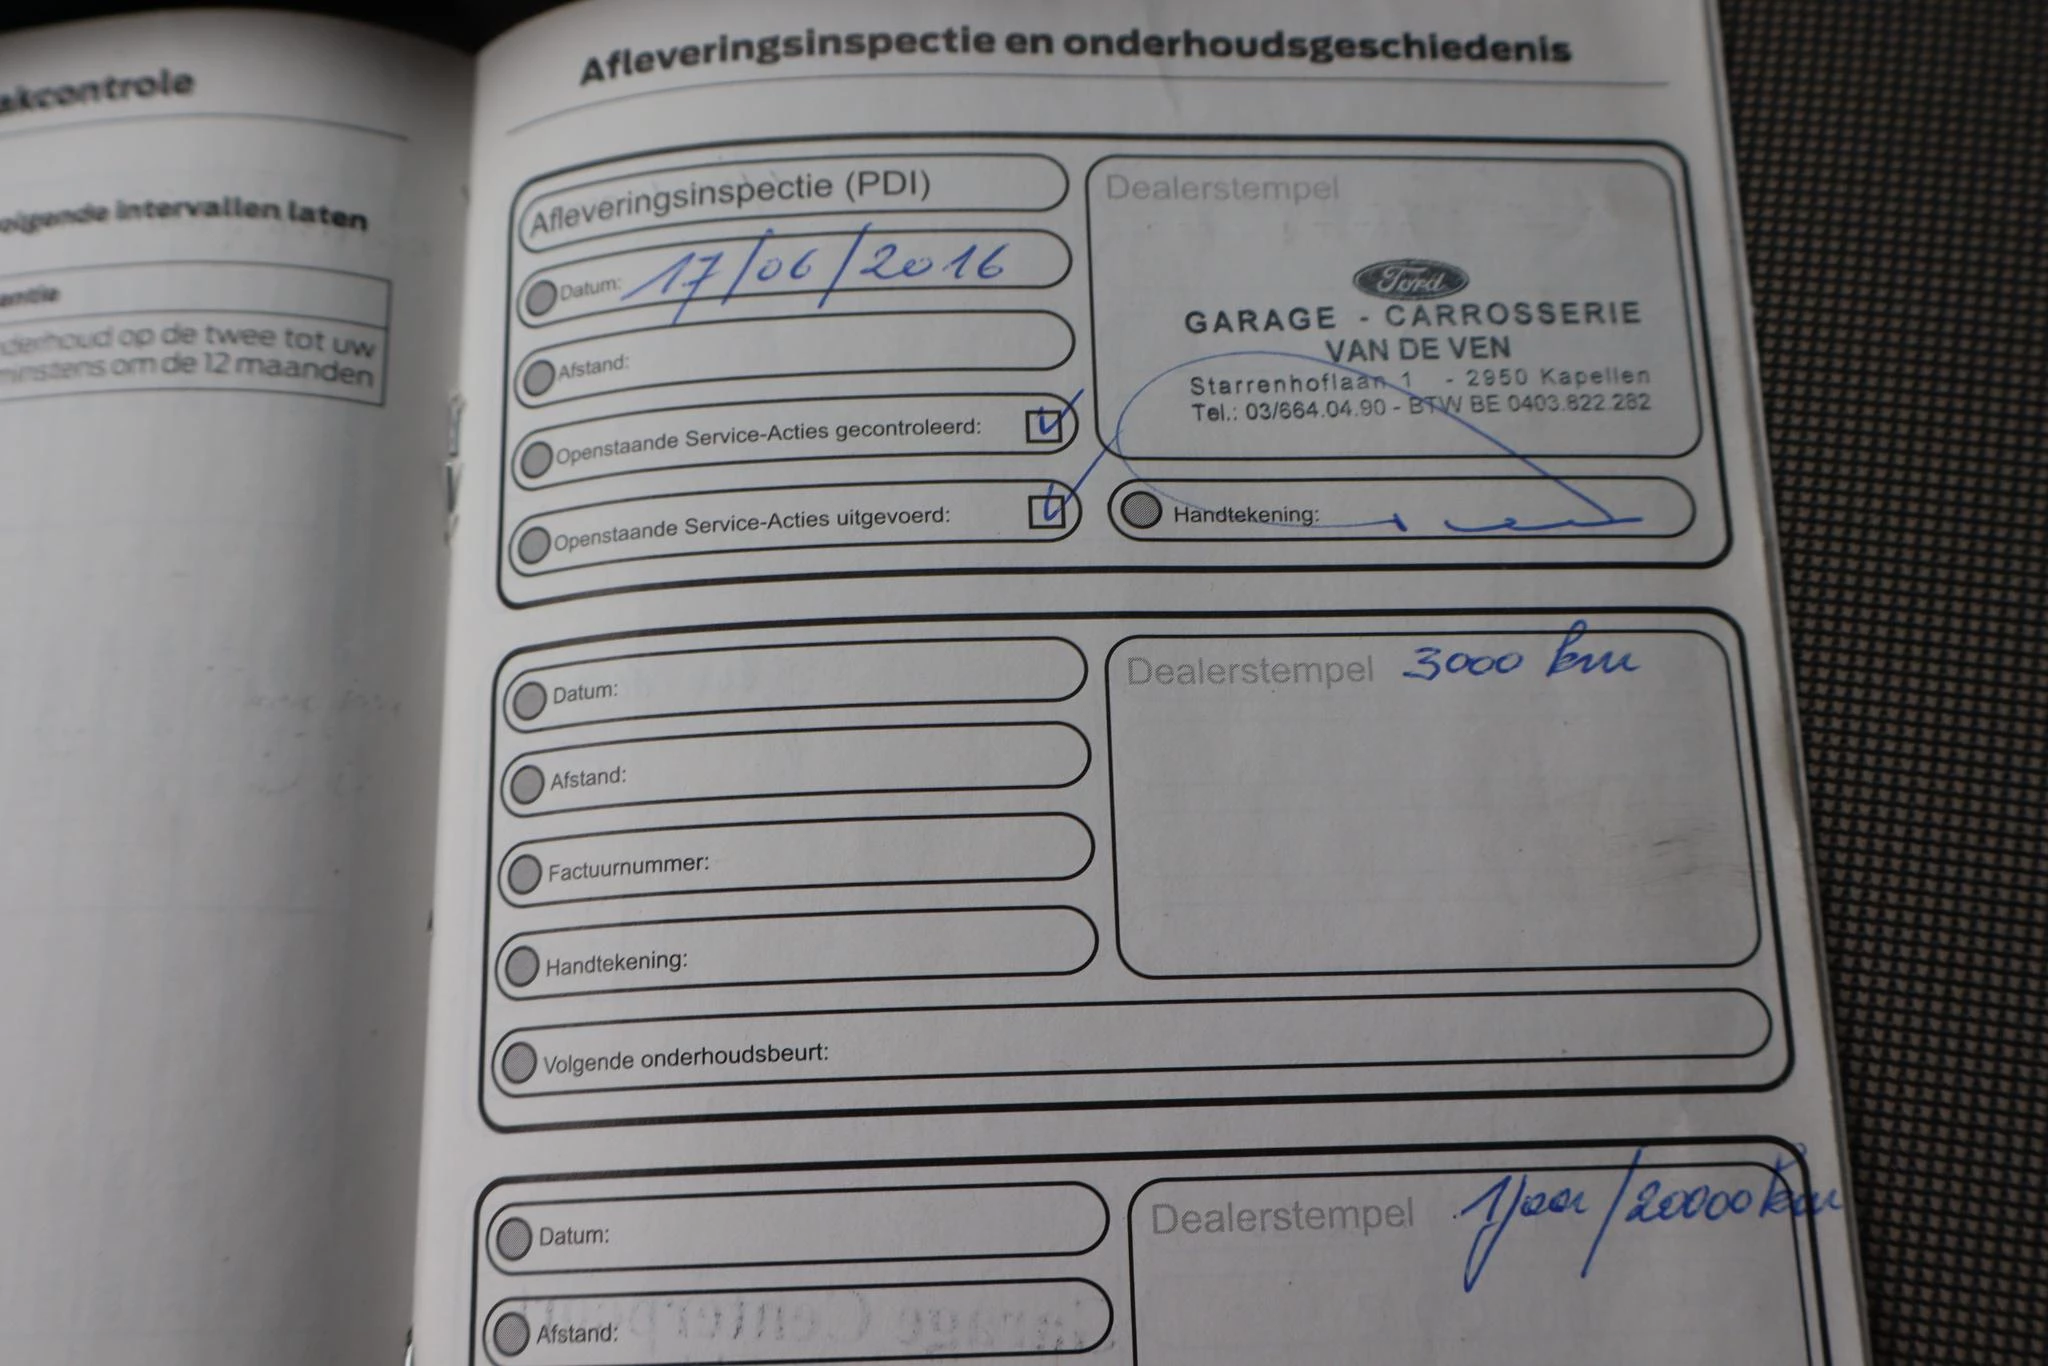 akcontrole
olgende intervallen laten
derhoud op de twee tot uw
minstens om de 12 maanden
Afleveringsinspectie en onderhoudsgeschiedenis
Afleveringsinspectie (PDI)
Datum: 17/06/2016
Afstand:
Openstaande Service-Acties gecontroleerd:
Openstaande Service-Acties uitgevoerd:
Dealerstempel
Ford
GARAGE - CARROSSERIE
VAN DE VEN
Starrenhoflaan 1 - 2950 Kapellen
Tel.: 03/664.04.90 - BTW BE 0403.822.282
Handtekening:
Datum:
Afstand:
Factuurnummer:
Handtekening:
Dealerstempel 3000 km
Volgende onderhoudsbeurt:
Datum:
Afstand:
Dealerstempel 1jaar/20000km